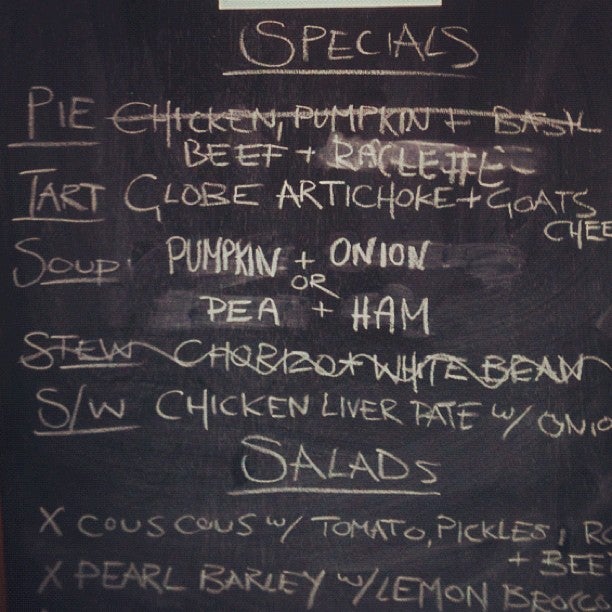 SPECIALS
PIE CHICKEN, PUMPKIN + BASIL
BEEF + RACLETTE
TART GLOBE ARTICHOKE + GOATS
CHEE
SOUP PUMPKIN + ONION
OR
PEA + HAM
STEW CHORIZO + WHITE BEAN
S/W CHICKEN LIVER PATE w/ ONIO
SALADS
X COUSCOUS w/ TOMATO, PICKLES, RO
+ BEE
X PEARL BARLEY w/ LEMON BROCCO